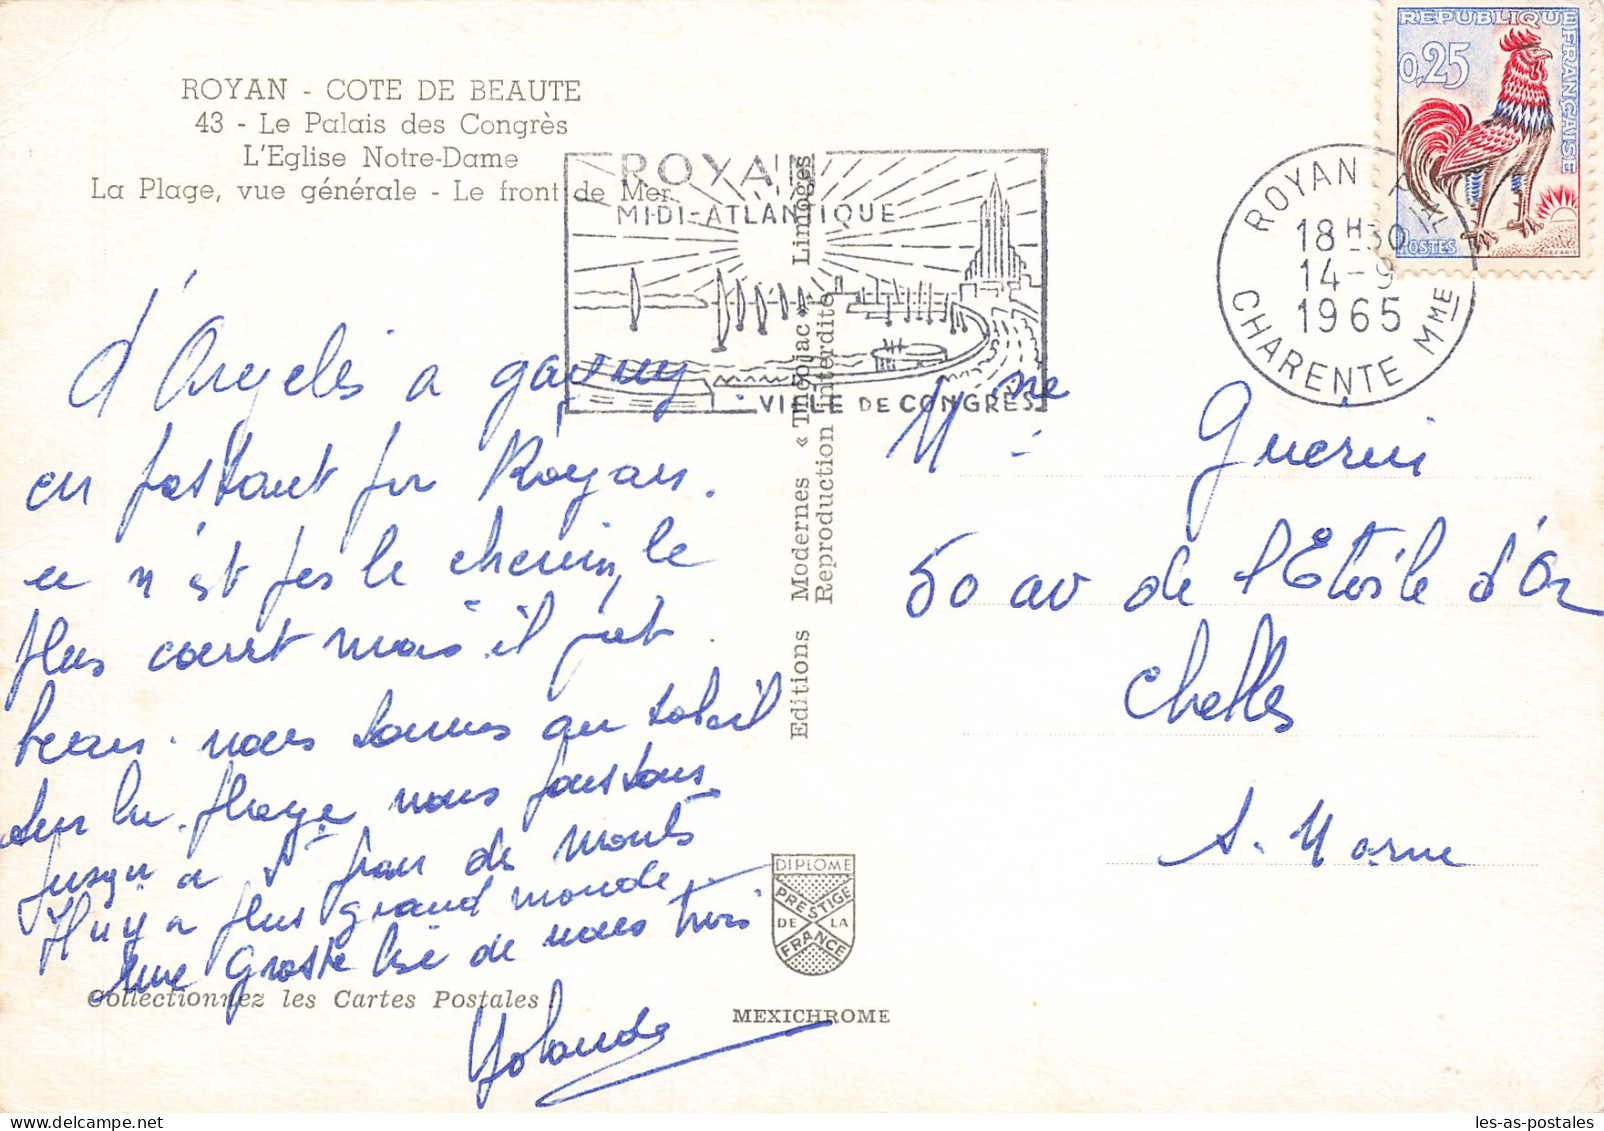 ROYAN - COTE DE BEAUTE
43 - Le Palais des Congrès
L'Eglise Notre-Dame
La Plage, vue générale - Le front de Mer
ROYAN
MIDI-ATLANTIQUE
VILLE DE CONGRÈS
ROYAN PAL
18H30
14-9
1965
CHARENTE MME
REPUBLIQUE FRANÇAISE
0,25
POSTES
d'Argelès a
en passant par Royan.
ce n'est pas le chemin le
plus court mais il fait
beau. nous sommes au soleil
sur la plage nous poussons
jusqu'a St Jean de Monts
Il n'y a plus grand monde
une grosse bise de nous trois
Yolande
Mme Guerin
50 av de l'Etoile d'Or
Chelles
S. Marne
Editions Modernes « Théojac » Limoges
Reproduction interdite
DIPLOME
PRESTIGE
DE LA
FRANCE
MEXICHROME
Collectionnez les Cartes Postales !
les-as-postales